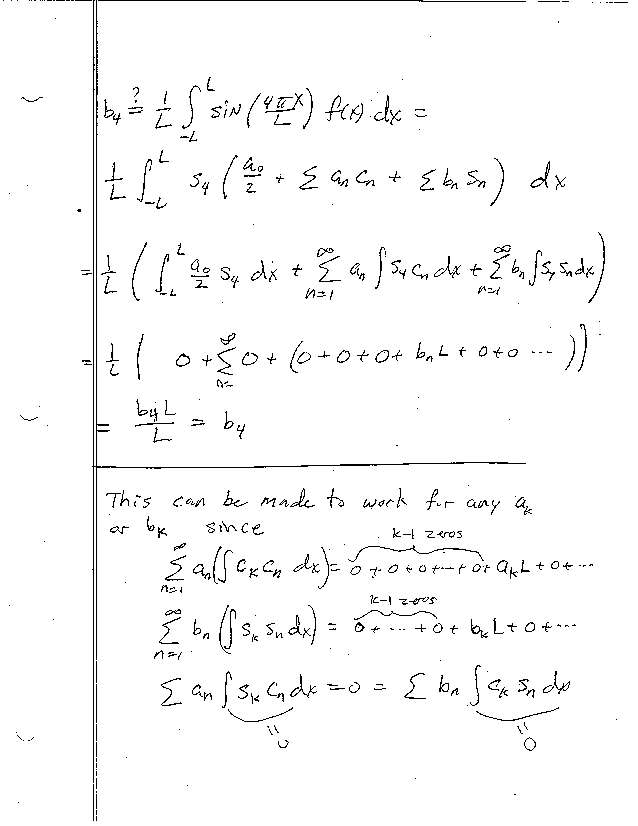 b₄ ?= 1/L ∫_{-L}^{L} sin(4πx/L) f(x) dx =
1/L ∫_{-L}^{L} s₄ (a₀/2 + Σ aₙcₙ + Σ bₙsₙ) dx
= 1/L ( ∫_{-L}^{L} a₀/2 s₄ dx + Σ_{n=1}^{∞} aₙ ∫s₄cₙdx + Σ_{n=1}^{∞} bₙ∫s₄sₙdx )
= 1/L ( 0 + Σ_{n=}^{∞} 0 + (0+0+0+ bₙL + 0+0 ··· ))
= b₄L/L = b₄
This can be made to work for any aₖ
or bₖ since
k-1 zeros
Σ_{n=1}^{∞} aₙ(∫cₖcₙ dx) = 0+0+0+···+0+ aₖL+0+···
k-1 zeros
Σ_{n=1}^{∞} bₙ(∫sₖsₙdx) = 0+···+0+ bₖL+0+···
Σ aₙ ∫sₖcₙdx = 0 = Σ bₙ ∫cₖsₙdx
= 0 = 0